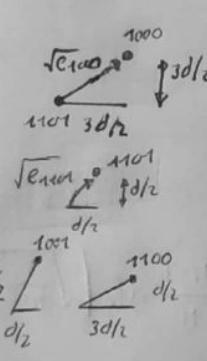 1000
√e1100 3d/2
1101 3d/2
√e1101 1101
d/2
d/2
1001 1100
d/2
d/2 3d/2